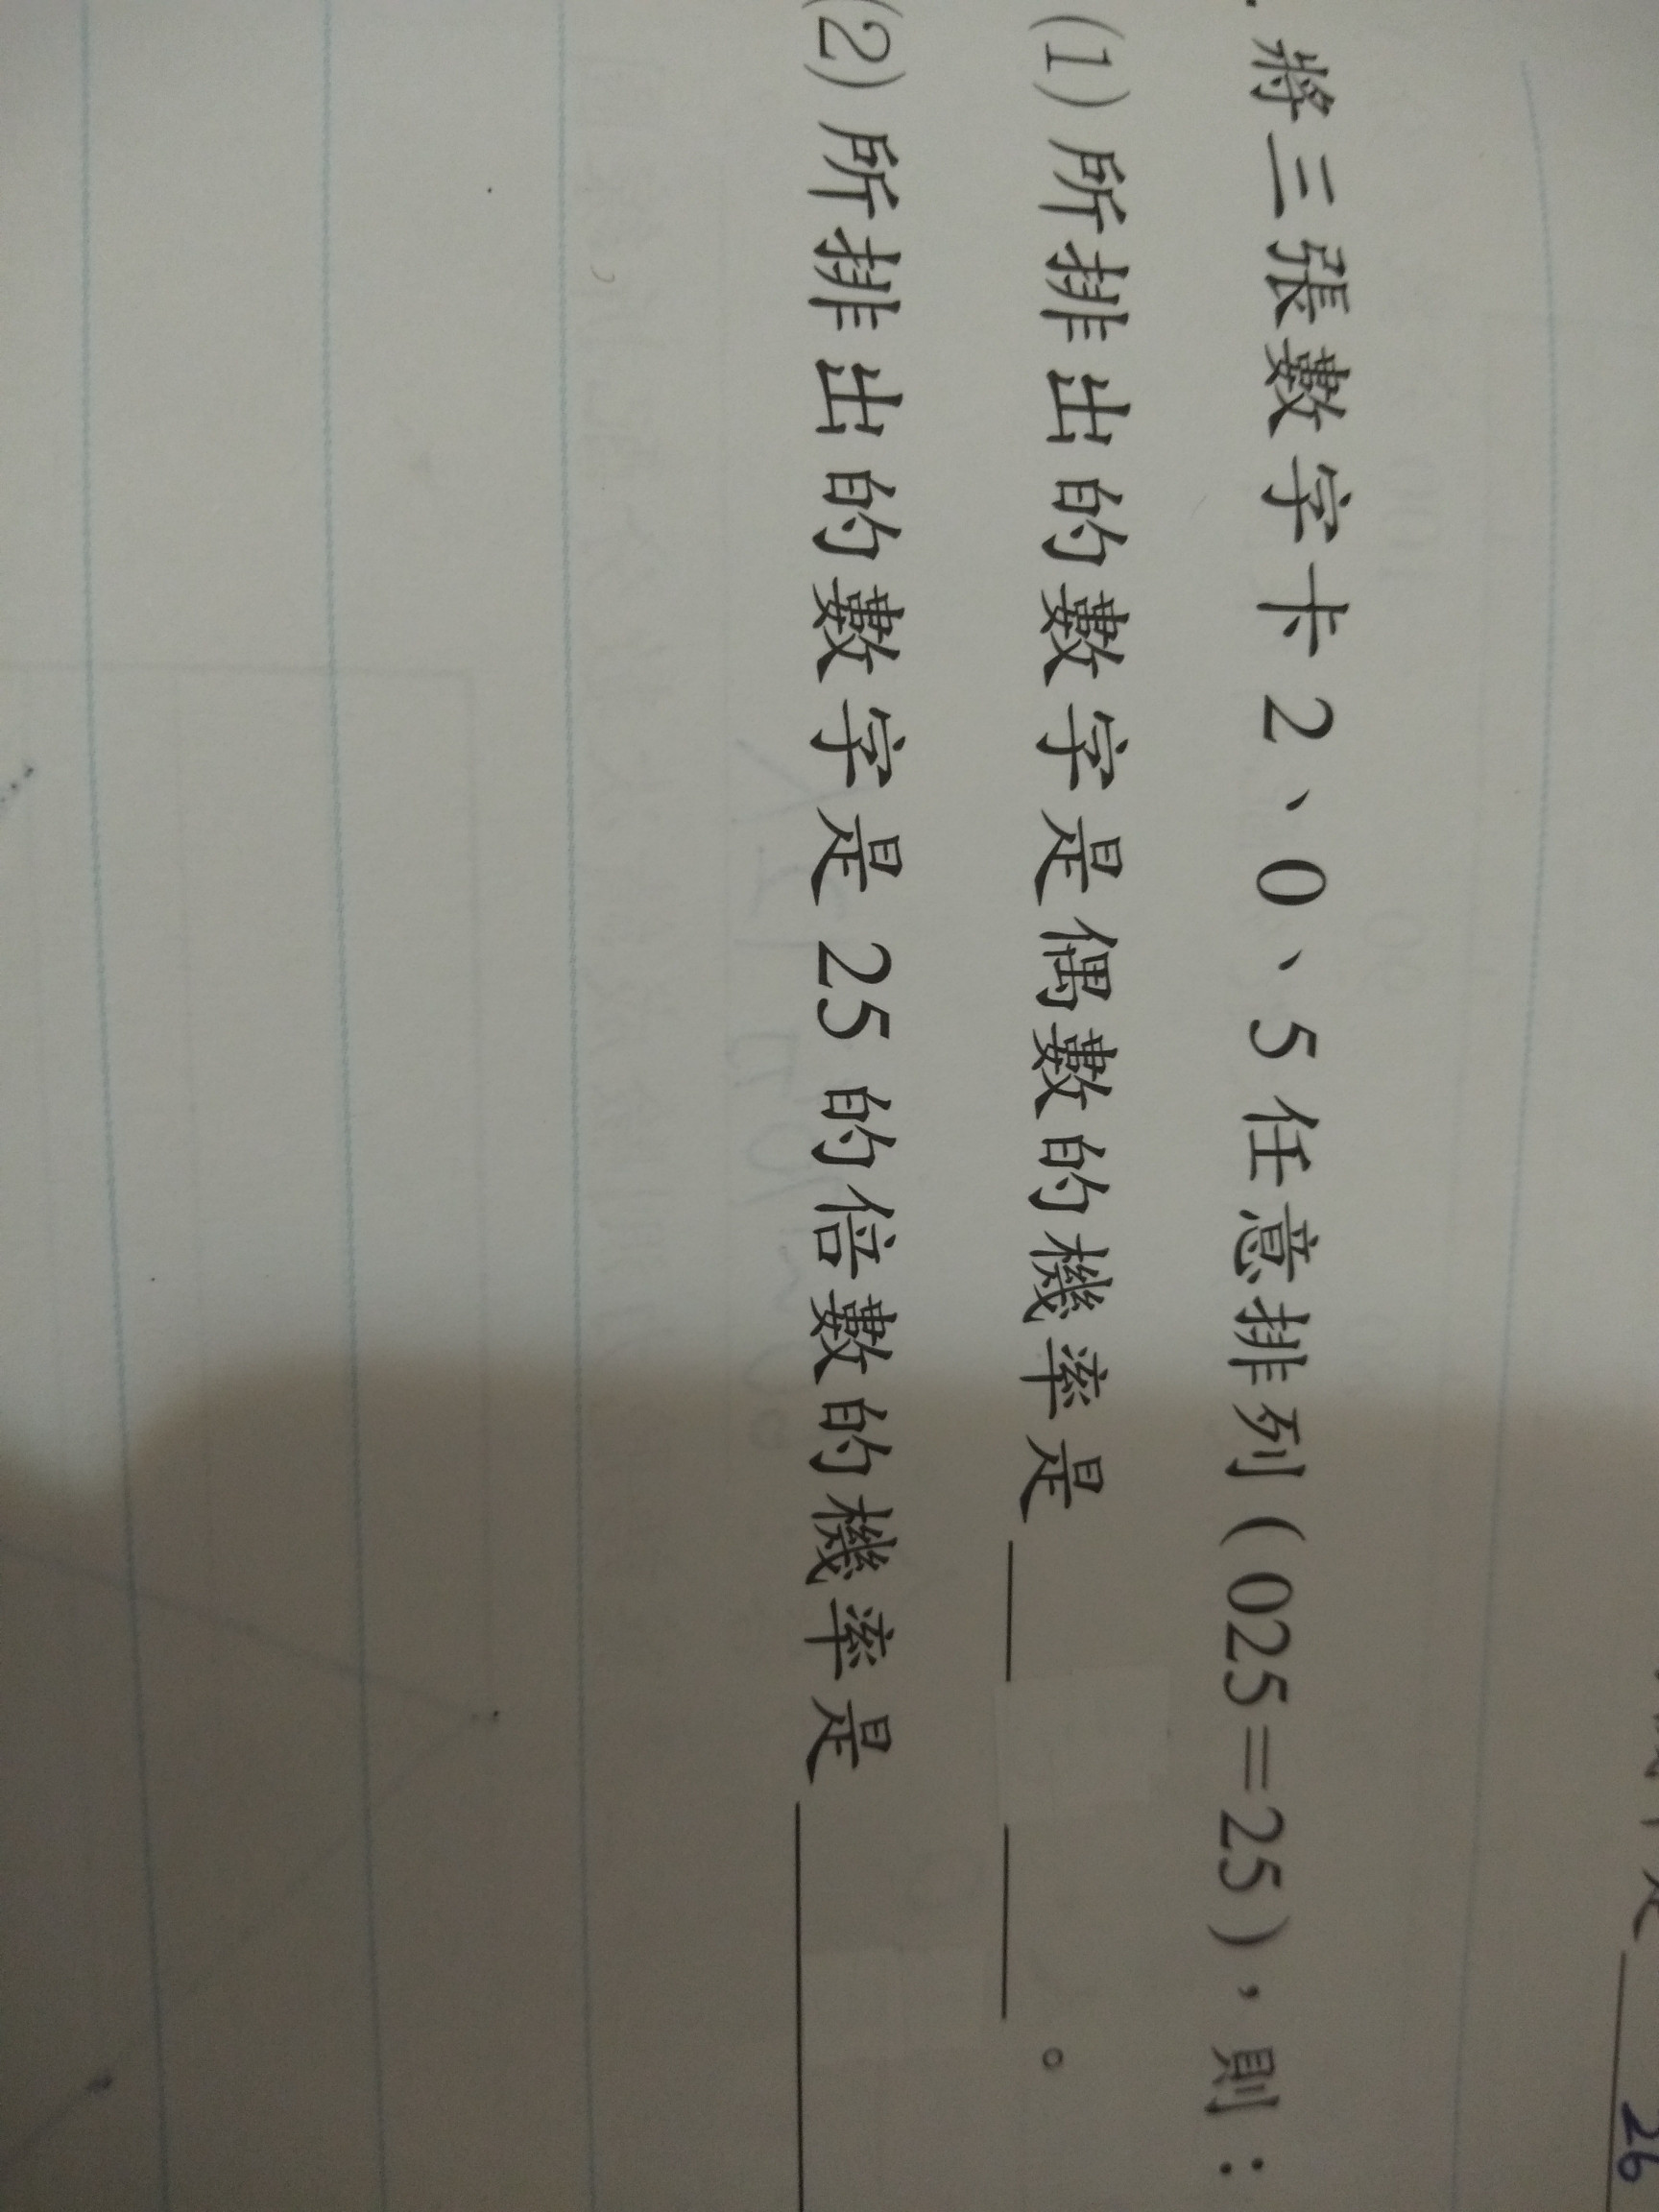 將三張數字卡2、0、5任意排列(025=25),則:
(1)所排出的數字是偶數的機率是______ ______。
(2)所排出的數字是25的倍數的機率是____________
26